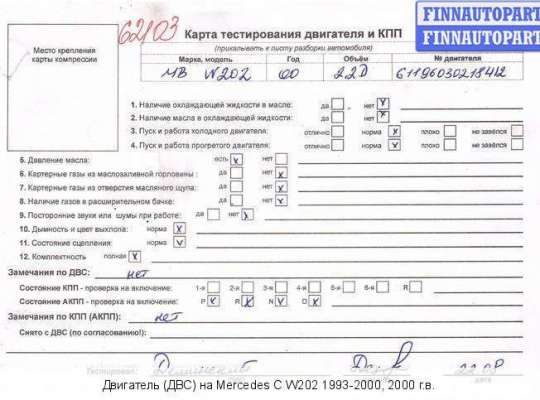 62/03
Карта тестирования двигателя и КПП
FINNAUTOPART
FINNAUTOPART
(прикалывать к листу разборки автомобиля)
Место крепления
карты компрессии
Марка, модель Год Объём № двигателя
MB W202 00 22D
1. Наличие охлаждающей жидкости в масле: да нет x
2. Наличие масла в охлаждающей жидкости: да нет x
3. Пуск и работа холодного двигателя: отлично норма x плохо не завёлся
4. Пуск и работа прогретого двигателя: отлично норма x плохо не завёлся
5. Давление масла: есть x нет
6. Картерные газы из маслозаливной горловины : да нет x
7. Картерные газы из отверстия масляного щупа: да нет x
8. Наличие газов в расширительном бачке: да нет x
9. Посторонние звуки или шумы при работе: да нет x
10. Дымность и цвет выхлопа: норма x
11. Состояние сцепления: норма v
12. Комплектность полная x
Замечания по ДВС: нет
Состояние КПП - проверка на включение: 1-я 2-я 3-я 4-я 5-я 6-я R
Состояние АКПП - проверка на включение: P x R x N v D x
Замечания по КПП (АКПП): нет
Снято с ДВС (по согласованию!):
Тестировал: 22.03
дата
Двигатель (ДВС) на Mercedes C W202 1993-2000, 2000 г.в.